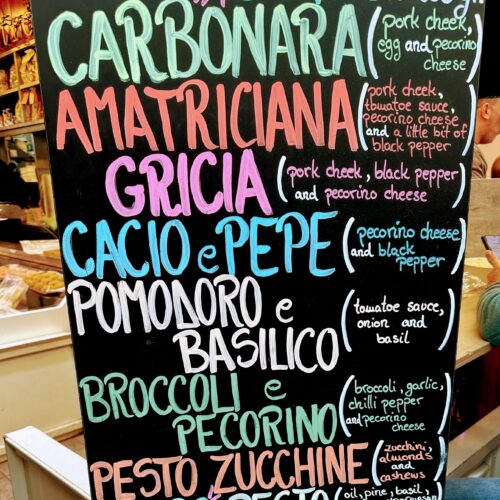 CARBONARA (pork cheek,
egg and pecorino
cheese)
AMATRICIANA (pork cheek,
tomatoe sauce,
pecorino cheese
and a little bit of
black pepper)
GRICIA (pork cheek, black pepper
and pecorino cheese)
CACIO e PEPE (pecorino cheese
and black
pepper)
POMODORO e
BASILICO (tomatoe sauce,
onion and
basil)
BROCCOLI e
PECORINO (broccoli, garlic,
chilli pepper
and pecorino
cheese)
PESTO ZUCCHINE (zucchini,
almonds
and
cashews)
PESTO (oil, pine, basil,